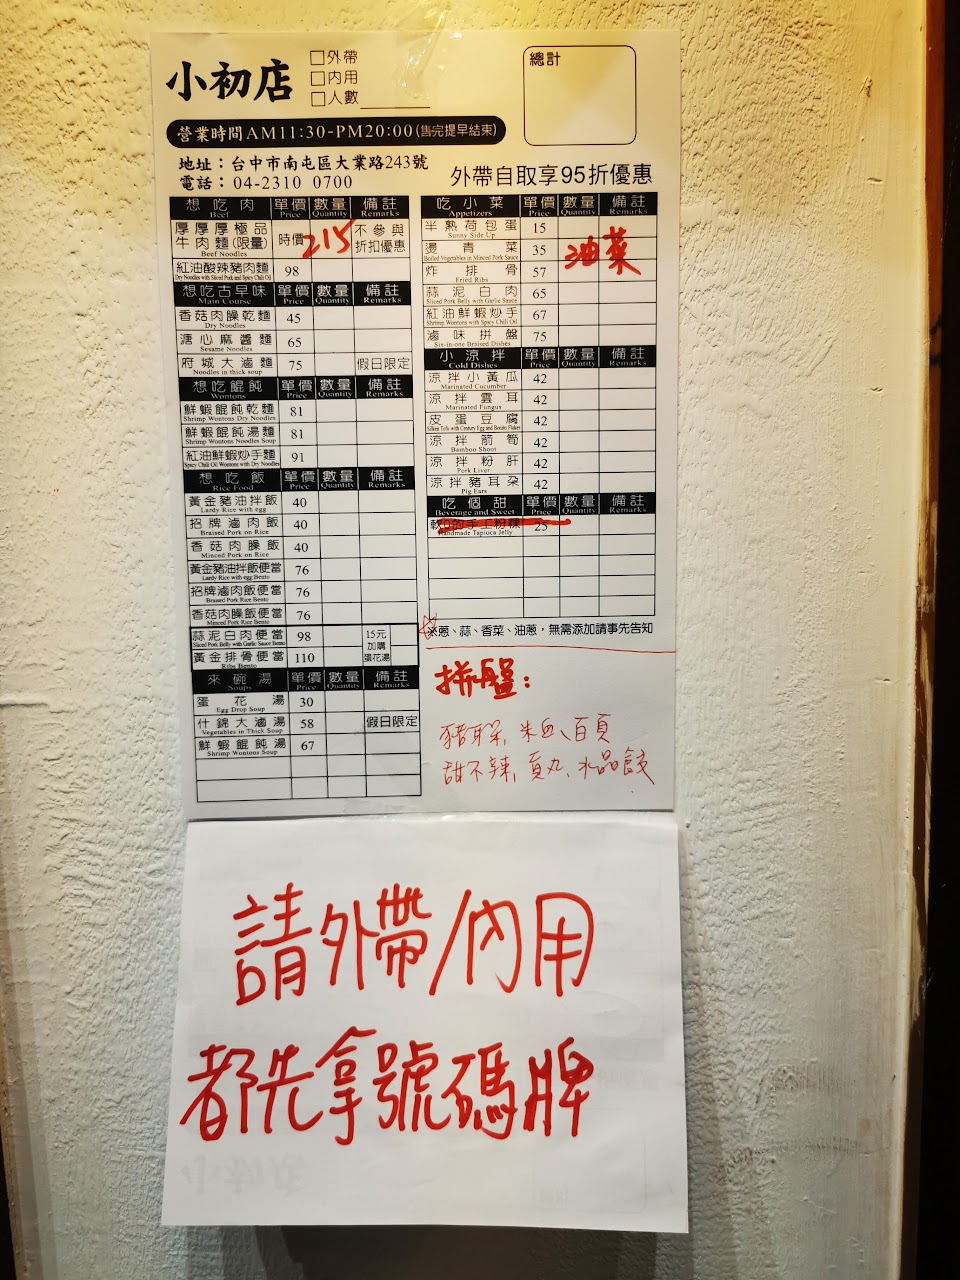 小初店
□外帶
□內用
□人數
總計
營業時間AM11:30-PM20:00(售完提早結束)
地址：台中市南屯區大業路243號
電話：04-2310 0700
外帶自取享95折優惠
想吃肉 單價 數量 備註
Beef Price Quantity Remarks
厚厚厚極品 牛肉麵(限量) 時價 215 不參與折扣優惠
Beef Noodles
紅油酸辣豬肉麵 98
Dry Noodles with Sliced Pork and Spicy Chili Oil
想吃古早味 單價 數量 備註
Main Course Price Quantity Remarks
香菇肉臊乾麵 45
Dry Noodles
溏心麻醬麵 65
Sesame Noodles
府城大滷麵 75 假日限定
Noodles in thick soup
想吃餛飩 單價 數量 備註
Wontons Price Quantity Remarks
鮮蝦餛飩乾麵 81
Shrimp Wontons Dry Noodles
鮮蝦餛飩湯麵 81
Shrimp Wontons Noodles Soup
紅油鮮蝦炒手麵 91
Spicy Chili Oil Wontons with Dry Noodles
想吃飯 單價 數量 備註
Rice Food Price Quantity Remarks
黃金豬油拌飯 40
Lardy Rice with egg
招牌滷肉飯 40
Braised Pork on Rice
香菇肉臊飯 40
Minced Pork on Rice
黃金豬油拌飯便當 76
Lardy Rice with egg Bento
招牌滷肉飯便當 76
Braised Pork Rice Bento
香菇肉臊飯便當 76
Minced Pork Rice Bento
蒜泥白肉便當 98
Sliced Pork Belly with Garlic Sauce Bento
黃金排骨便當 110
Ribs Bento
15元
加購
蛋花湯
來碗湯 單價 數量 備註
Soups Price Quantity Remarks
蛋花湯 30
Egg Drop Soup
什錦大滷湯 58 假日限定
Vegetables in Thick Soup
鮮蝦餛飩湯 67
Shrimp Wontons Soup
吃小菜 單價 數量 備註
Appetizers Price Quantity Remarks
半熟荷包蛋 15
Sunny Side Up
燙青菜 35 油菜
Boiled Vegetables in Minced Pork Sauce
炸排骨 57
Fried Ribs
蒜泥白肉 65
Sliced Pork Belly with Garlic Sauce
紅油鮮蝦炒手 67
Shrimp Wontons with Spicy Chili Oil
滷味拼盤 75
Six-in-one Braised Dishes
小涼拌 單價 數量 備註
Cold Dishes Price Quantity Remarks
涼拌小黃瓜 42
Marinated Cucumber
涼拌雲耳 42
Marinated Fungus
皮蛋豆腐 42
Silken Tofu with Century Egg and Bonito Flakes
涼拌箭筍 42
Bamboo Shoot
涼拌粉肝 42
Pork Liver
涼拌豬耳朵 42
Pig Ears
吃個甜 單價 數量 備註
Beverage and Sweet Price Quantity Remarks
軟Q的手工粉粿 25
Handmade Tapioca Jelly
☆※蔥、蒜、香菜、油蔥，無需添加請事先告知
拼盤：
豬耳朵、米血、百頁
甜不辣、貢丸、水晶餃
請外帶/內用
都先拿號碼牌